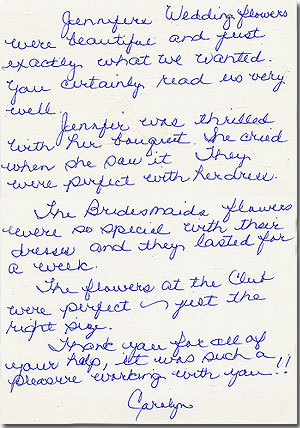 Jennifers Wedding flowers
were beautiful and just
exactly what we wanted.
You certainly read us very
well.
Jennifer was thrilled
with her bouquet. She cried
when she saw it They
were perfect with her dress.
The Bridesmaids flowers
were so special with their
dresses and they lasted for
a week.
The flowers at the Club
were perfect – just the
right size.
Thank you for all of
your help, it was such a
pleasure working with you!!
Carolyn